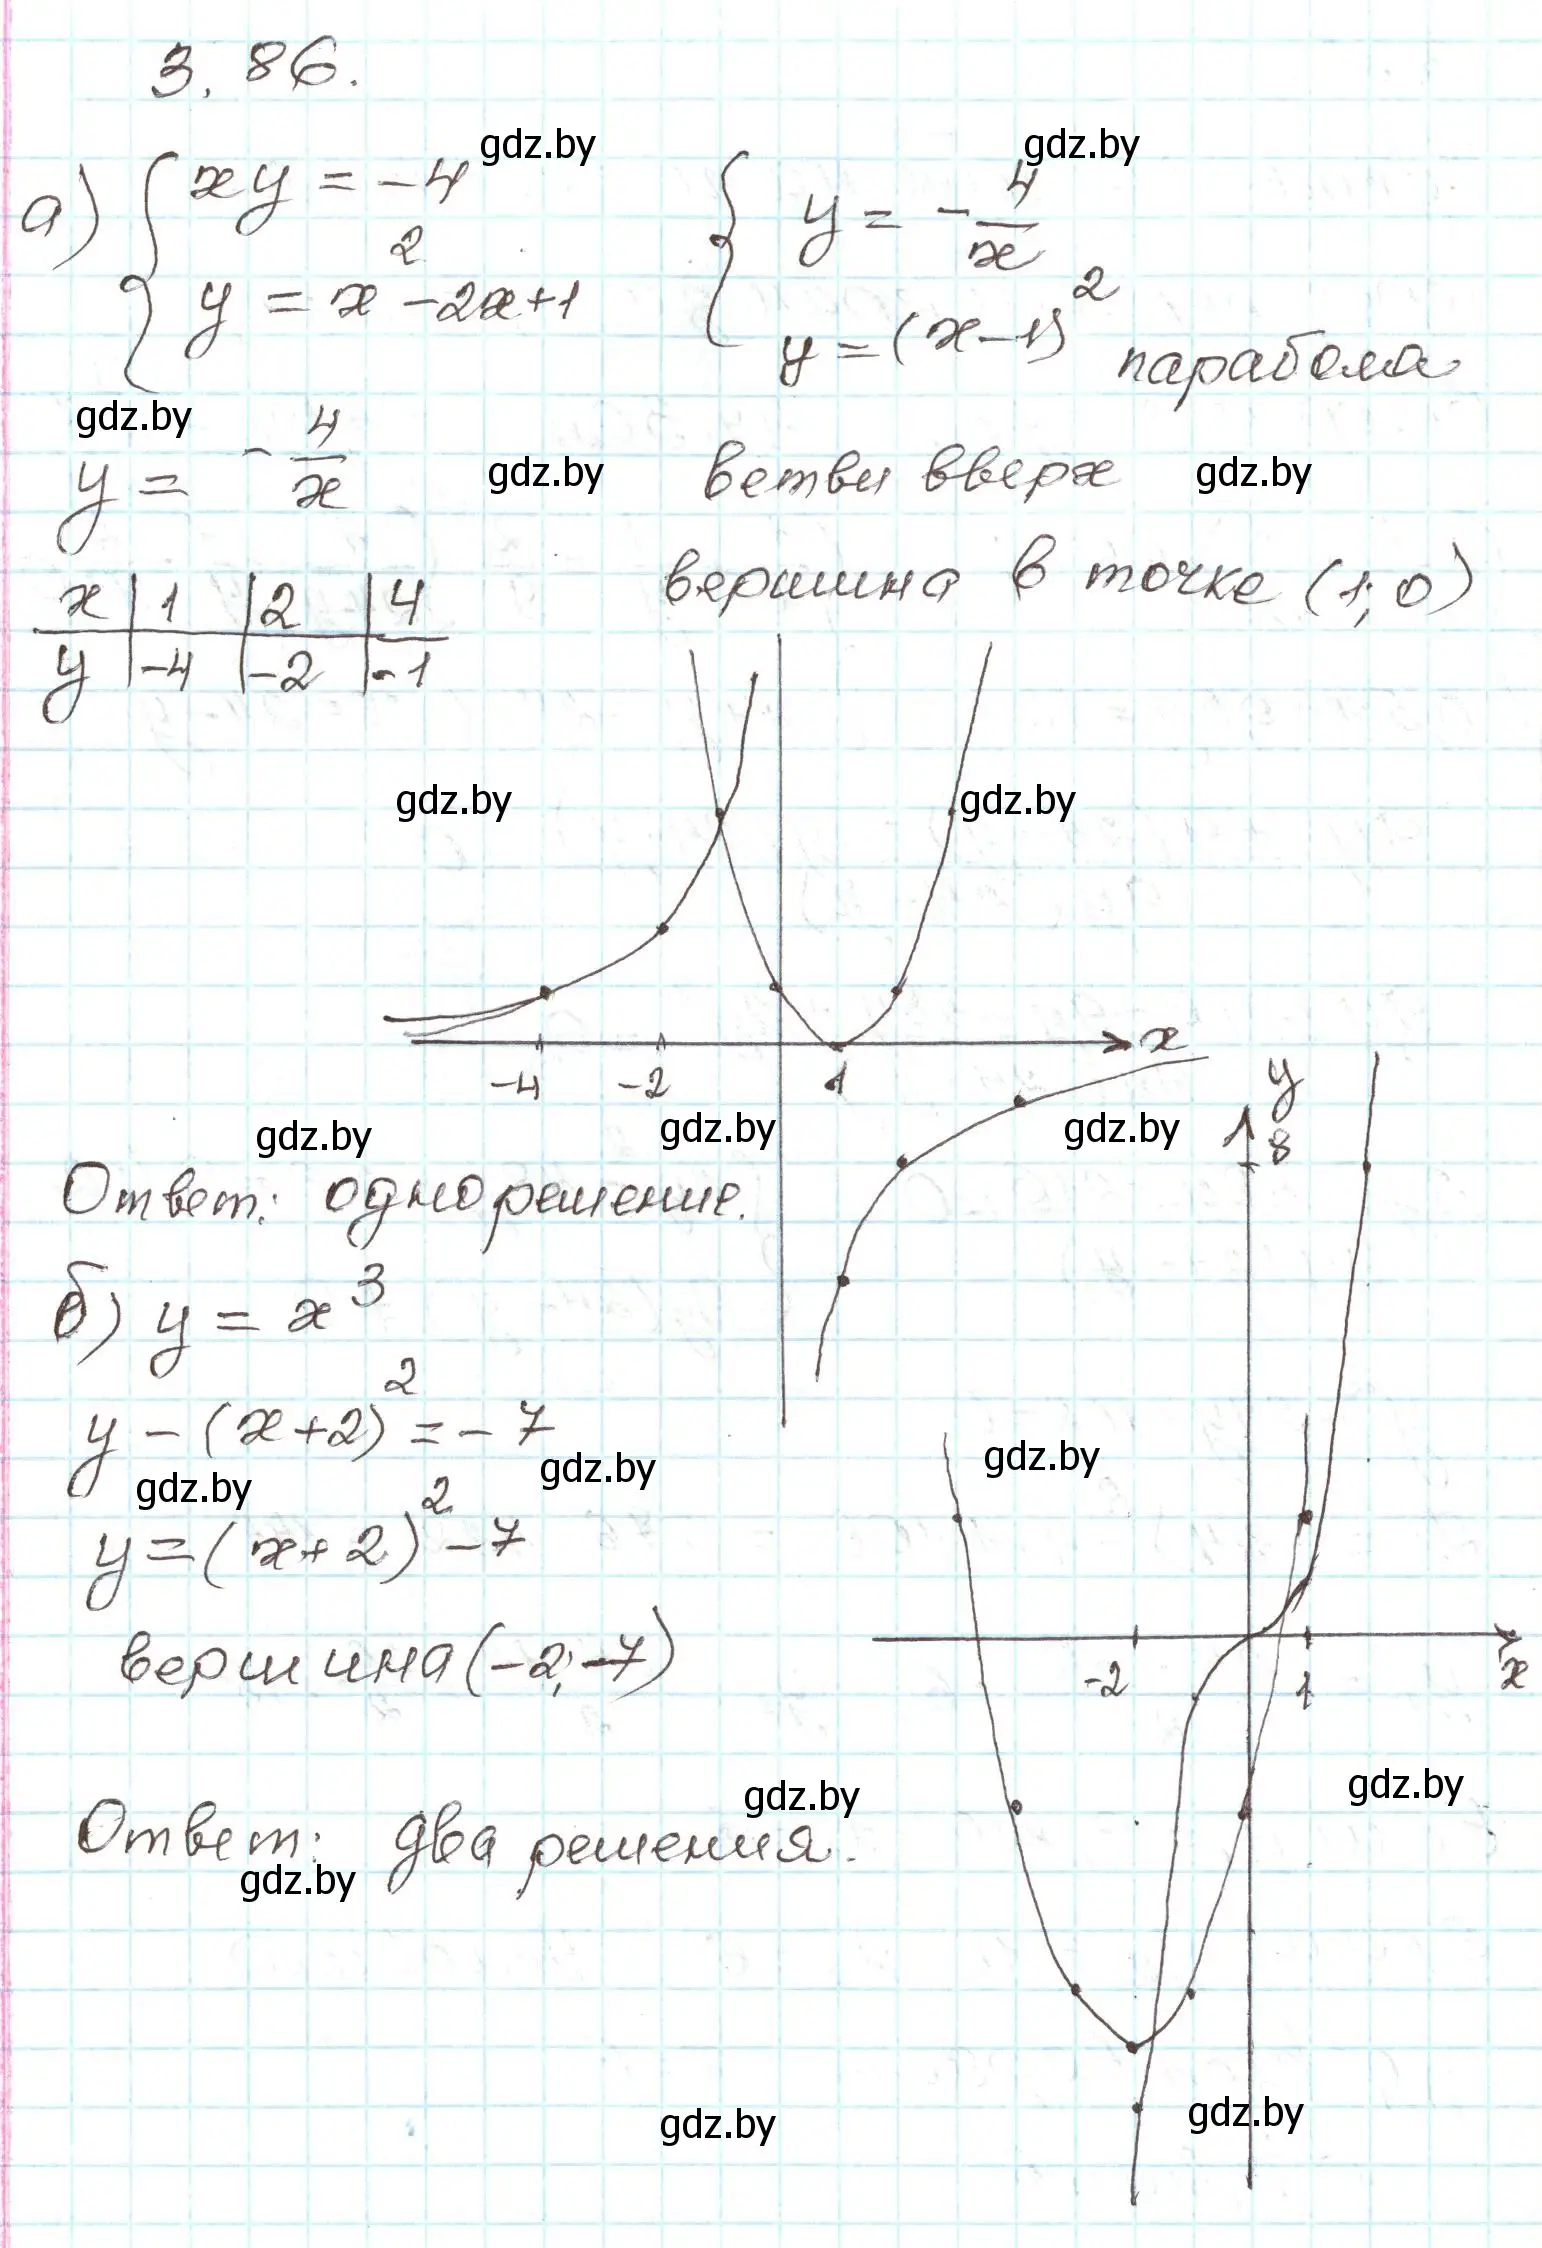 3.86.
gdz.by gdz.by
а) { xy = -4 { y = -4/x
y = x² - 2x + 1 y = (x-1)² парабола
gdz.by
y = -4/x ветви вверх
gdz.by gdz.by
вершина в точке (1; 0)
x | 1 | 2 | 4
y | -4 | -2 | -1
gdz.by gdz.by
x
-4 -2 1
y
gdz.by gdz.by gdz.by
8
Ответ: одно решение.
б) y = x³
y - (x+2)² = -7
gdz.by gdz.by gdz.by
y = (x+2)² - 7
вершина (-2; -7)
-2 1 x
gdz.by gdz.by
Ответ: два решения.
gdz.by
gdz.by gdz.by